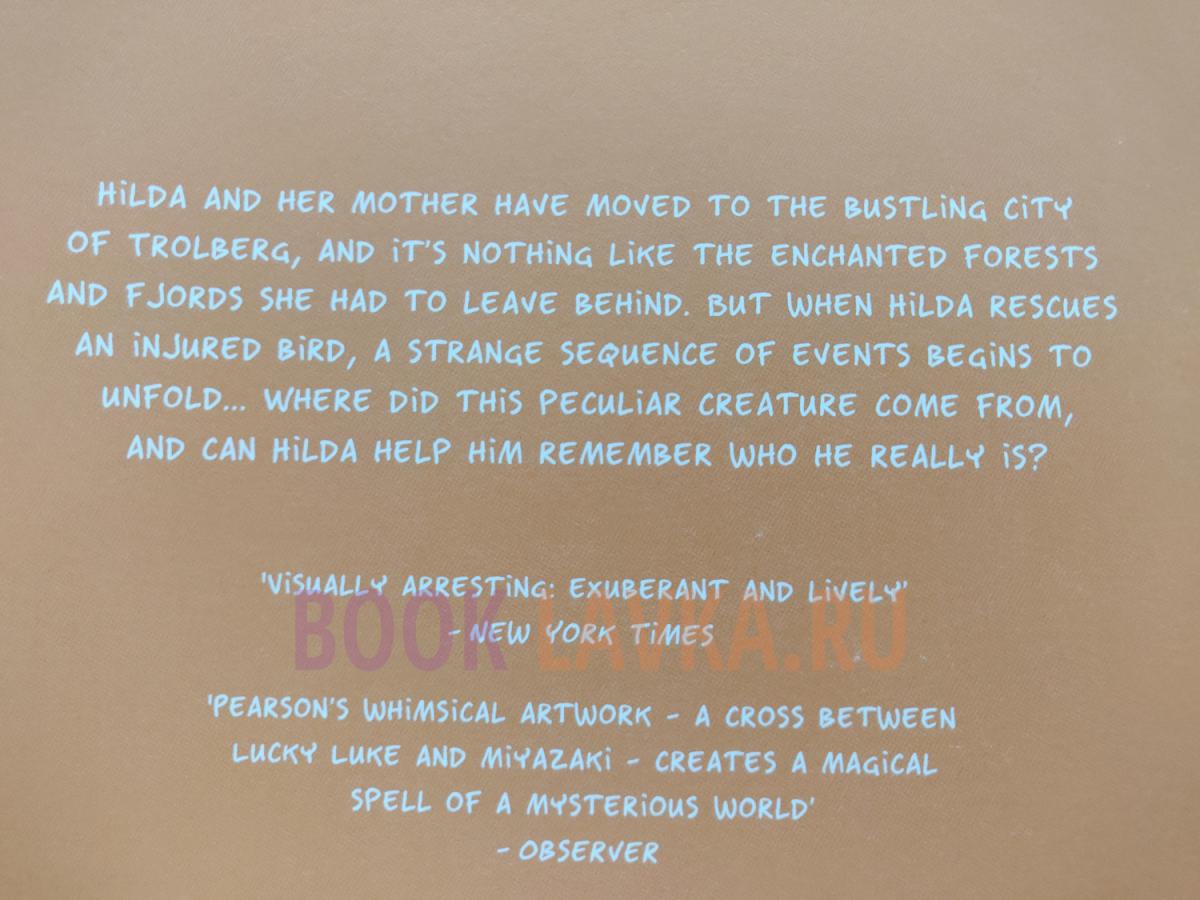 HiLDA AND HER MOTHER HAVE MOVED TO THE BUSTLiNG CiTY
OF TROLBERG, AND iT'S NOTHiNG LiKE THE ENCHANTED FORESTS
AND FJORDS SHE HAD TO LEAVE BEHiND. BUT WHEN HiLDA RESCUES
AN iNJURED BiRD, A STRANGE SEQUENCE OF EVENTS BEGiNS TO
UNFOLD... WHERE DiD THiS PECULiAR CREATURE COME FROM,
AND CAN HiLDA HELP HiM REMEMBER WHO HE REALLY iS?
'ViSUALLY ARRESTiNG: EXUBERANT AND LiVELY'
BOOK-LAVKA.RU
- NEW YORK TiMES
'PEARSON'S WHiMSiCAL ARTWORK - A CROSS BETWEEN
LUCKY LUKE AND MiYAZAKi - CREATES A MAGiCAL
SPELL OF A MYSTERiOUS WORLD'
- OBSERVER